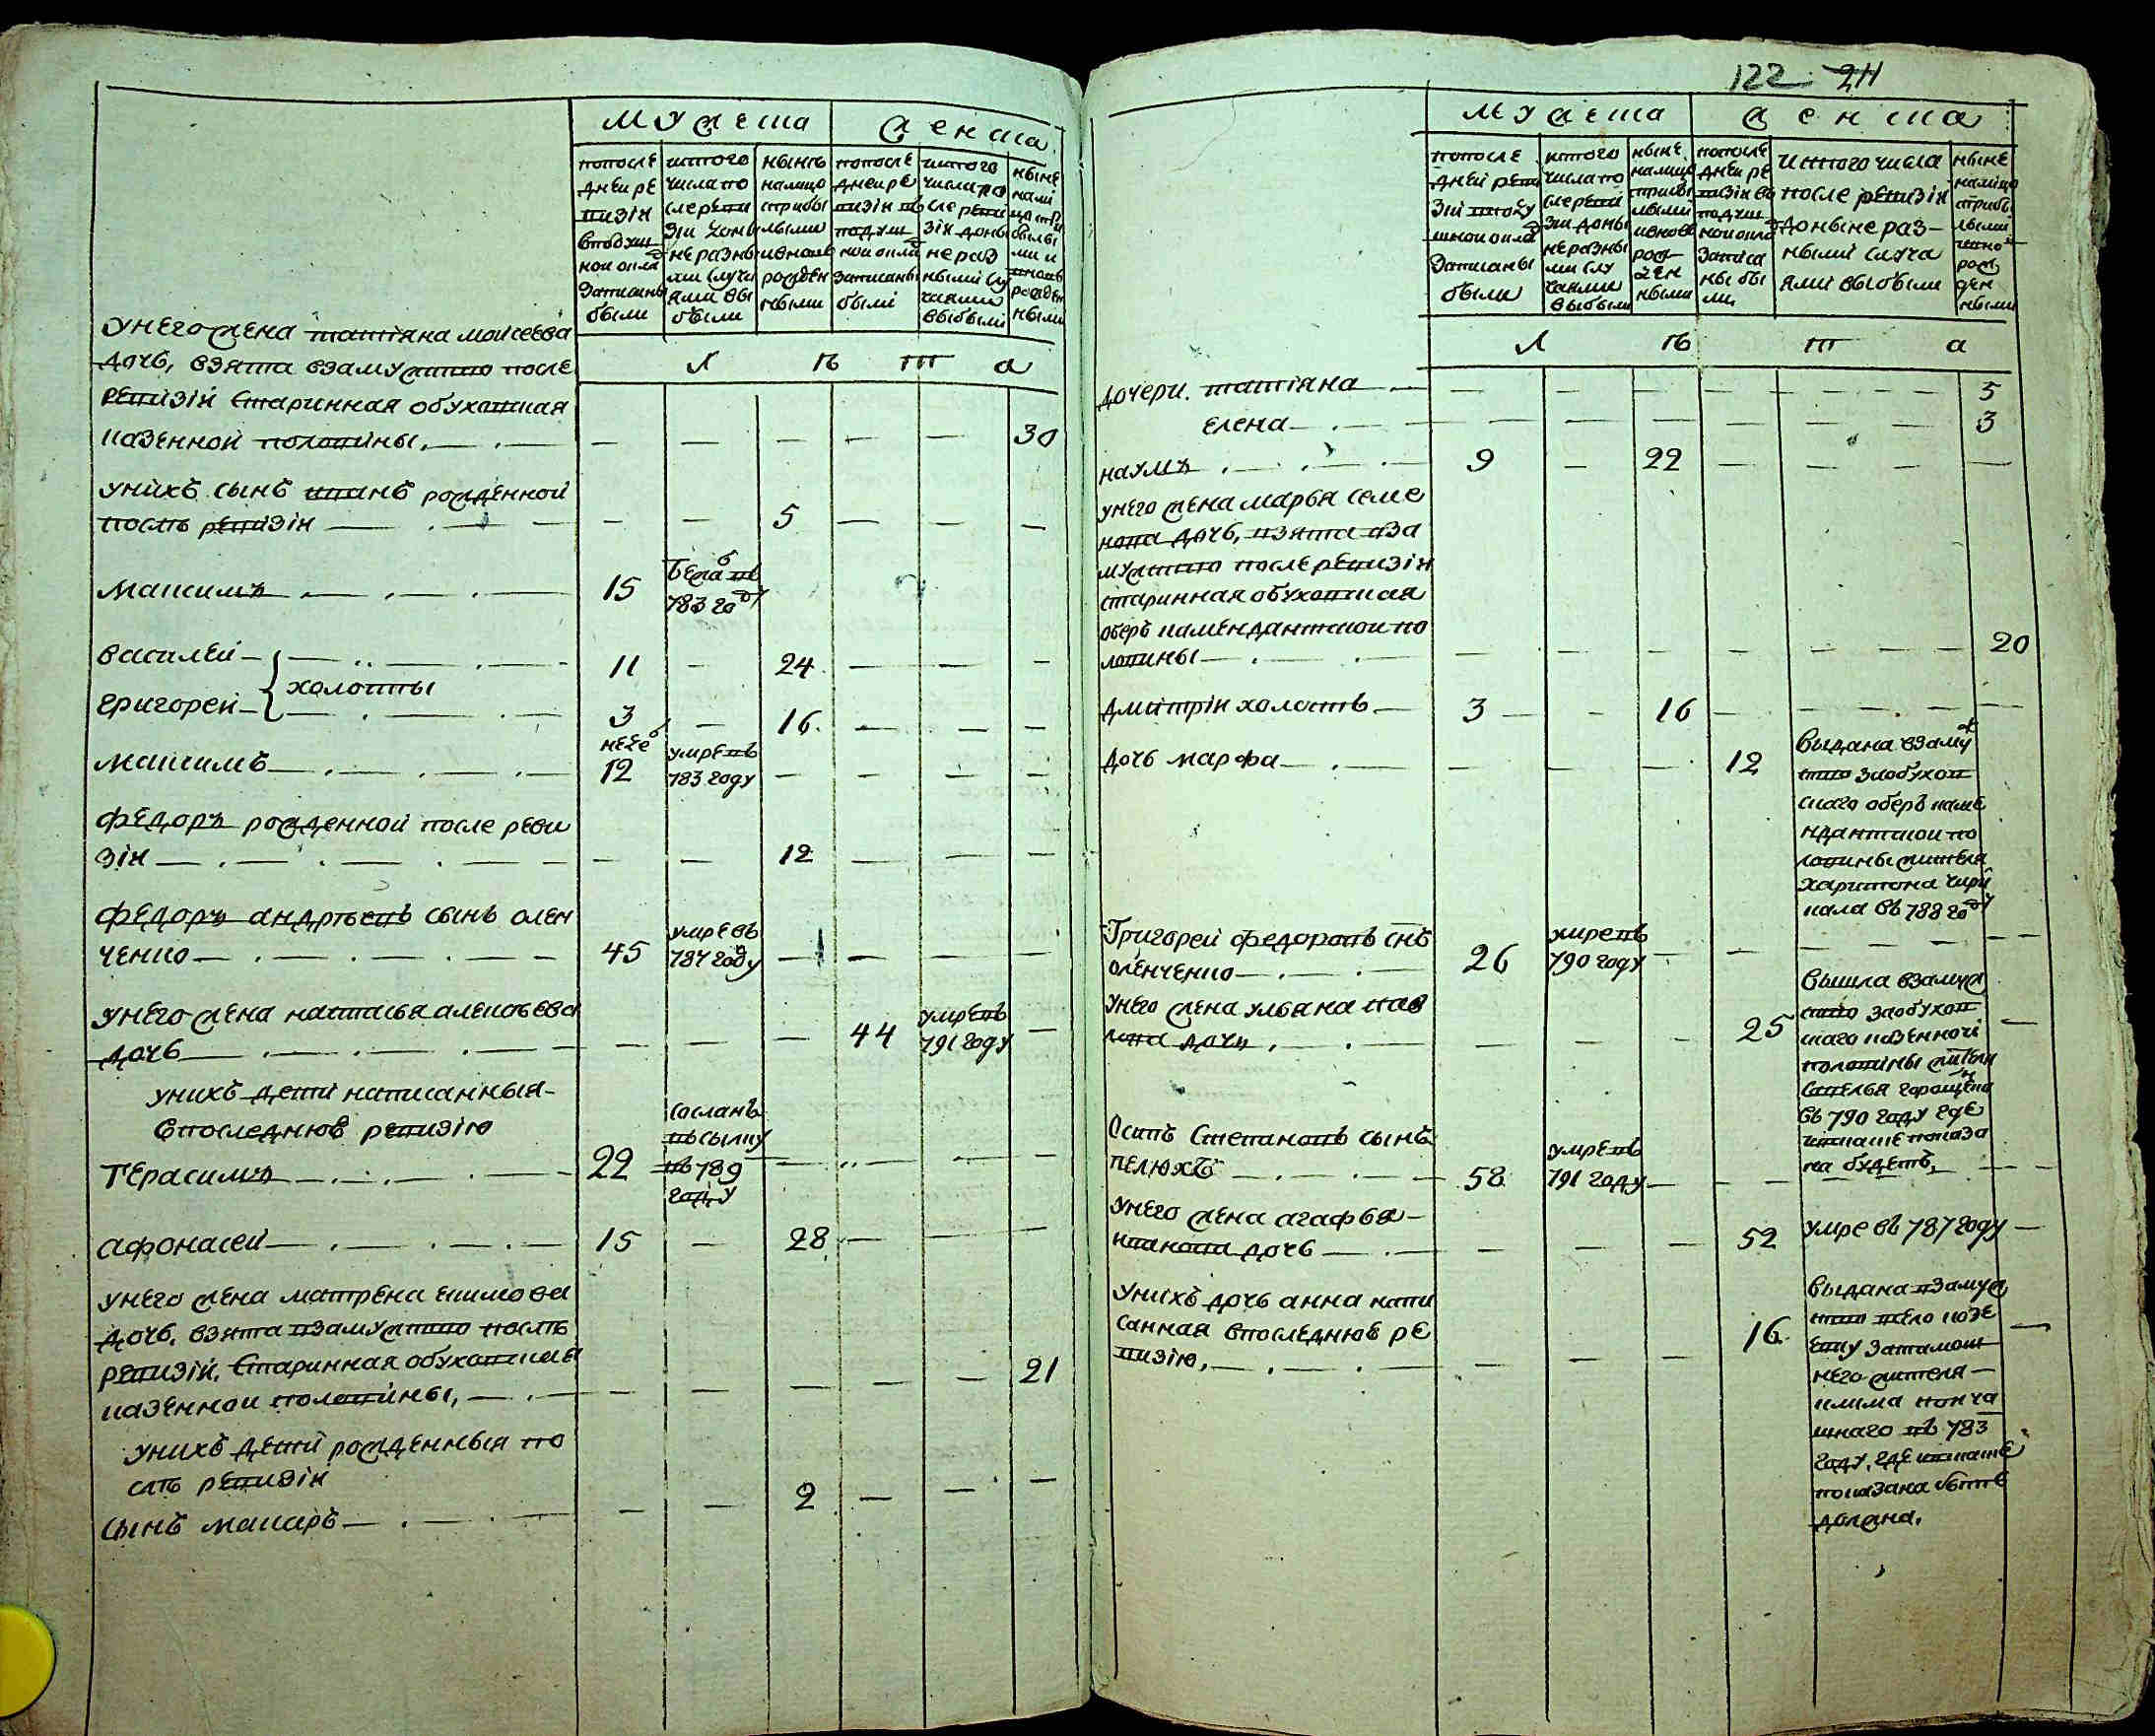 122 211
мужеска
женска
попосле
дней ре
визіи
вподуш
ной окла
записаны
были
изтого
числа по
сле реви
зіи доны
не разны
ми случа
ями вы
были
нынѣ
налицо
прибы
лыми
ивновь
рожден
ными
попосле
дней ре
визіи въ
подуш
ной окла
записаны
были
изтого
числа по
сле реви
зіи доны
не раз
ными слу
чаями
выбыли
ныне
нали
цо при
былы
ми и
вновь
рожден
ными
лѣта
унего жена татіяна моисеева
дочь, взята взамужство после
ревизіи старинная обуховская
казенной половины, 30
унихъ сынъ иванъ рожденной
послѣ ревизіи 5
максимъ 15 бежа въ
783 году
василей 11 24
холосты
григорей 3 16
максимъ 12 умре въ
783 году
федоръ рожденной после реви
зіи 12
федоръ андрѣевъ сынъ олен
ченко 45 умре въ
787 году
унего жена наталья алексѣева
дочь 44 умре въ
791 году
унихъ дети написанныя
впоследнюю ревизію
Герасимъ 22 сосланъ
въсылку
въ 789
году
афонасей 15 28
унего жена матрена екимова
дочь, взята взамужство послѣ
ревизіи, старинная обуховская
казенной половины, 21
унихъ дети рожденныя по
слѣ ревизіи
сынъ макаръ 2
мужеска
женска
попосле
дней реви
зіи вподу
шной окла
записаны
были
изтого
числа по
сле реви
зіи доны
не разны
ми слу
чаями
выбыли
ныне
налицо
прибы
лыми
ивновь
рож
ден
ными
попосле
дней ре
визіи въ
подуш
ной окла
записа
ны бы
ли
изтого числа
после ревизіи
доныне раз-
ными случа
ями выбыли
ныне
налицо
прибы
лыми
ивно
рож
ден
ными
лѣта
дочери. татіяна 5
елена 3
наумъ 9 22
унего жена марья семе
нова дочь, взята вза
мужство после ревизіи
старинная обуховская
оберъ камендантской по
ловины 20
дмитріи холостъ 3 16
дочь марфа 12 выдана взамуж
ство заобухов
скаго оберъ каме
ндантской по
ловины жителя
харитона чири
кала въ 788 году
Григорей федоровъ снъ
оленченко 26 умре въ
790 году
унего жена ульяна пав
лова дочь, 25 вышла взамуж
ство заобухов
скаго казенной
половины жителя
савелья горащенка
въ 790 году где
иниже показа
на будетъ,
Осипъ Степановъ сынъ
пелюхъ 58 умре въ
791 году
унего жена агафья
иванова дочь 52 умре въ 787 году
унихъ дочь анна напи
санная впоследнюю ре
визію, 16 выдана взамуж
ство всело козе
евку затамош
него жителя
клима
въ 783
году, где иниже
показана быть
должна.